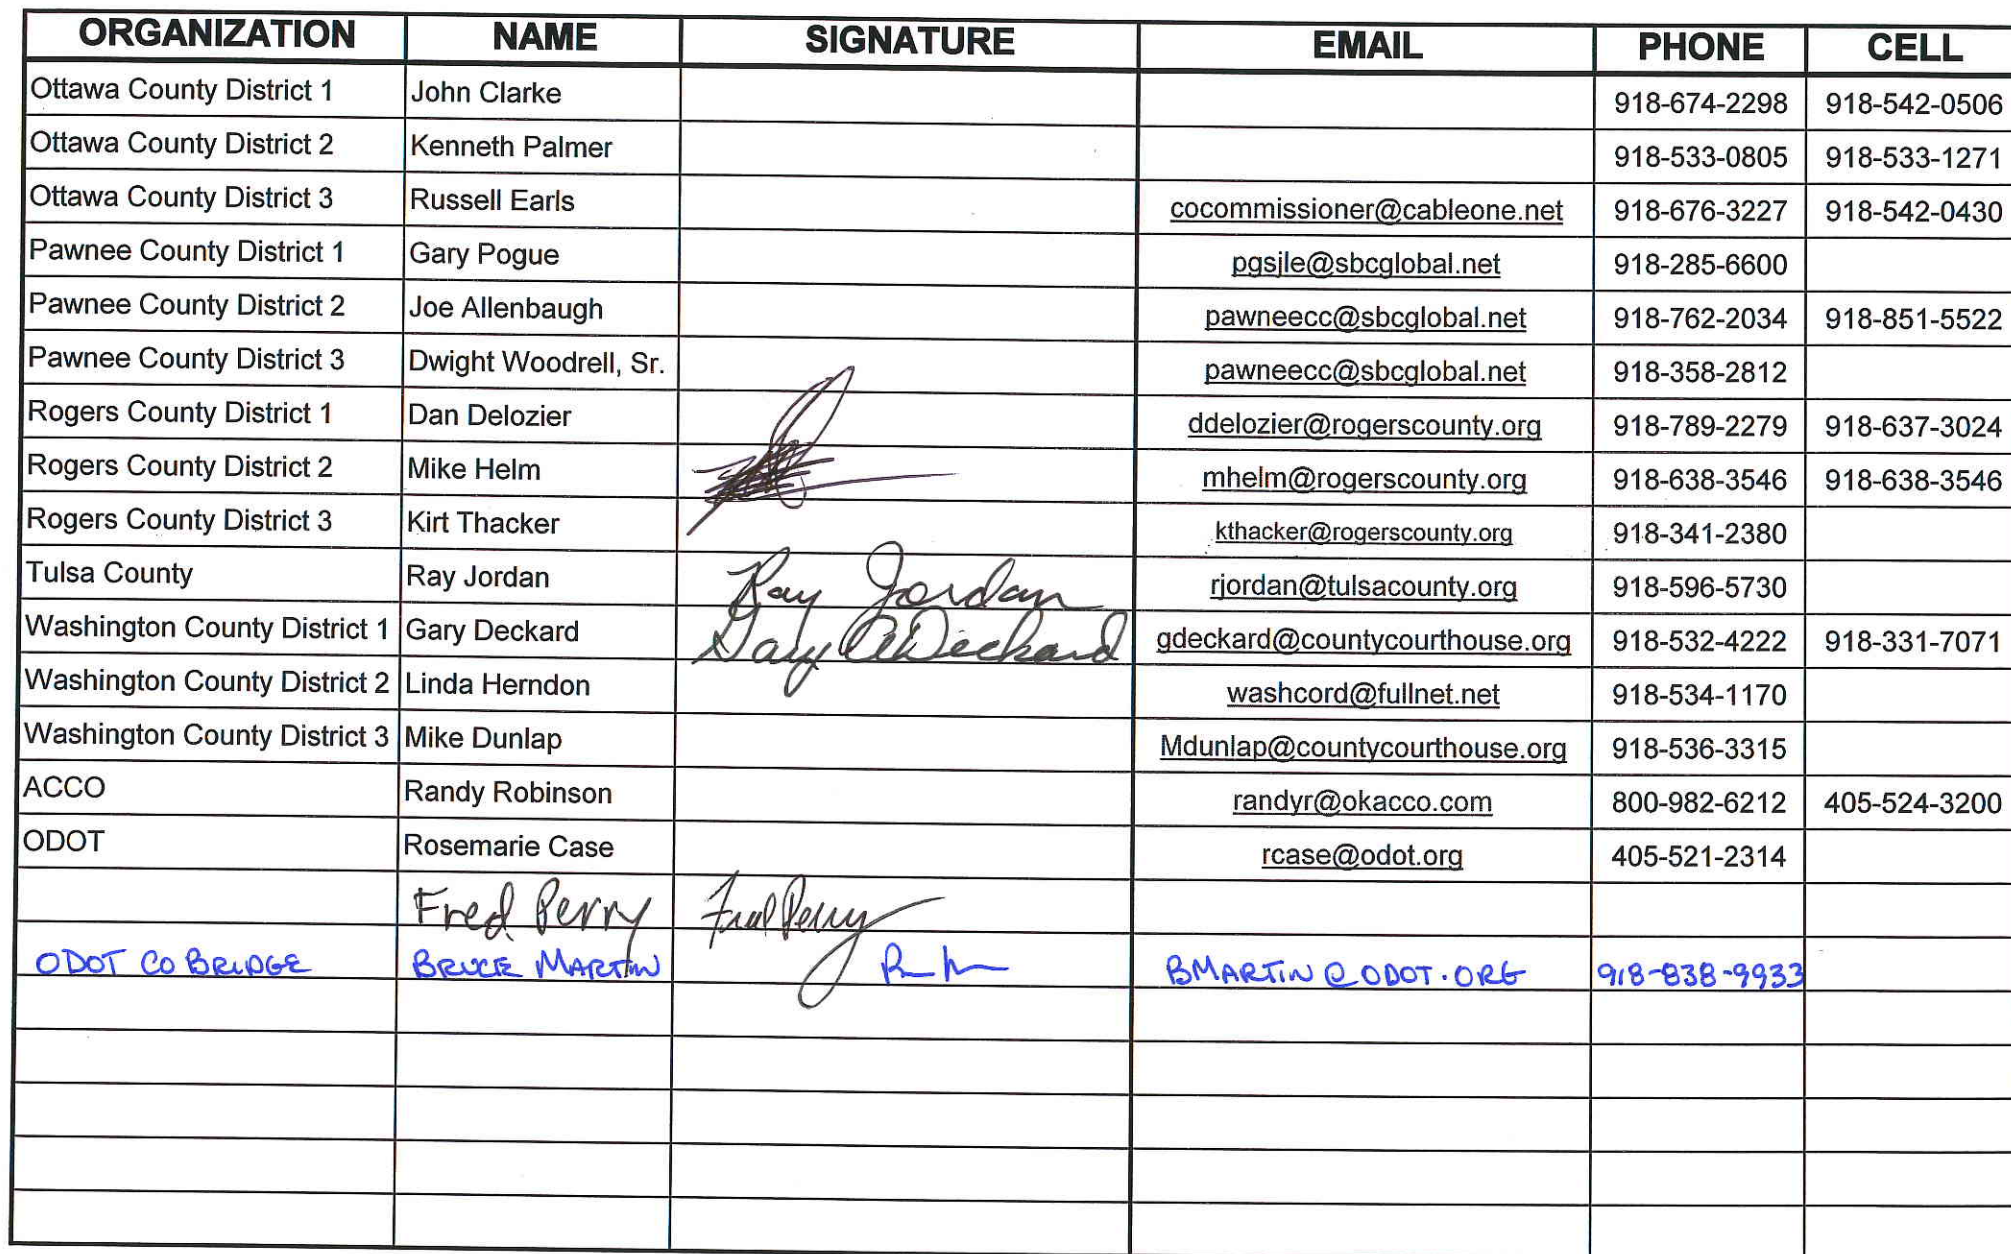 ORGANIZATION NAME SIGNATURE EMAIL PHONE CELL
Ottawa County District 1 John Clarke 918-674-2298 918-542-0506
Ottawa County District 2 Kenneth Palmer 918-533-0805 918-533-1271
Ottawa County District 3 Russell Earls cocommissioner@cableone.net 918-676-3227 918-542-0430
Pawnee County District 1 Gary Pogue pgsjle@sbcglobal.net 918-285-6600
Pawnee County District 2 Joe Allenbaugh pawneecc@sbcglobal.net 918-762-2034 918-851-5522
Pawnee County District 3 Dwight Woodrell, Sr. pawneecc@sbcglobal.net 918-358-2812
Rogers County District 1 Dan Delozier ddelozier@rogerscounty.org 918-789-2279 918-637-3024
Rogers County District 2 Mike Helm mhelm@rogerscounty.org 918-638-3546 918-638-3546
Rogers County District 3 Kirt Thacker kthacker@rogerscounty.org 918-341-2380
Tulsa County Ray Jordan Ray Jordan rjordan@tulsacounty.org 918-596-5730
Washington County District 1 Gary Deckard Gary Deckard gdeckard@countycourthouse.org 918-532-4222 918-331-7071
Washington County District 2 Linda Herndon washcord@fullnet.net 918-534-1170
Washington County District 3 Mike Dunlap Mdunlap@countycourthouse.org 918-536-3315
ACCO Randy Robinson randyr@okacco.com 800-982-6212 405-524-3200
ODOT Rosemarie Case rcase@odot.org 405-521-2314
Fred Perry Fred Perry
ODOT CO BRIDGE BRUCE MARTIN BMARTIN@ODOT.ORG 918-838-9933